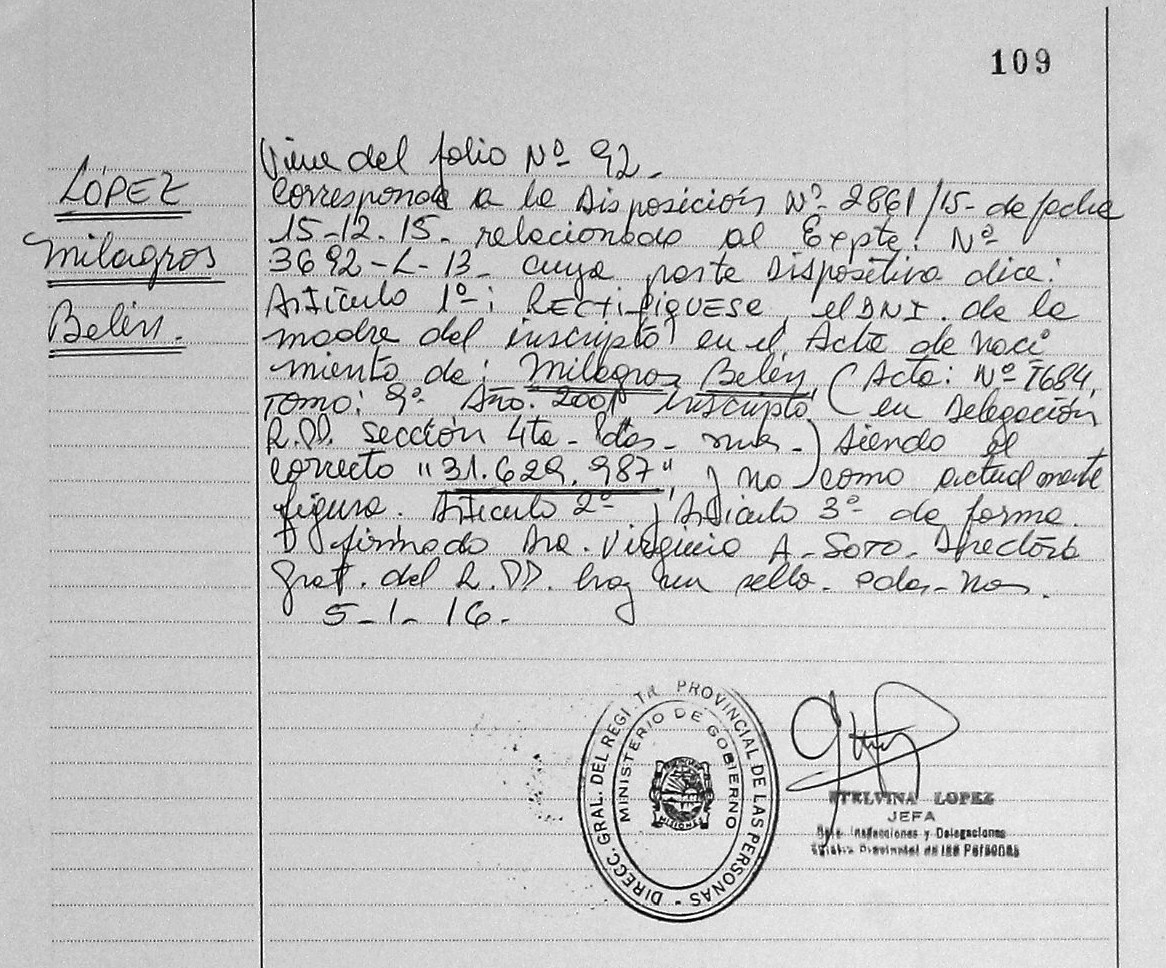 109
LÓPEZ
Milagros
Belén.
Viene del folio Nº 92.
Corresponde a la Disposición Nº 2861/15- de fecha
15-12.15. relacionado al Expte. Nº
3692-L-13- cuya parte Dispositiva dice:
Artículo 1º: RECTIFIQUESE, el DNI. de la
madre del inscripto en el Acta de naci
miento de: Milagros Belén, (Acta: Nº 1684,
Tomo: 9º Año: 2001 inscripto en Delegación
R.PP. Sección 4ta- ) siendo el
correcto "31.629.987", y no como actualmente
figura. Artículo 2º y Artículo 3º de forma.
firmado Dra. Virginia A. Soto. Directora
Gral. del R.PP. hay un sello.
5-1-16.
DIRECC. GRAL. DEL REGI TR PROVINCIAL DE LAS PERSONAS -
MINISTERIO DE GOBIERNO
MISIONES
ETELVINA LOPEZ
JEFA
Inspecciones y Delegaciones
Provincial de las Personas